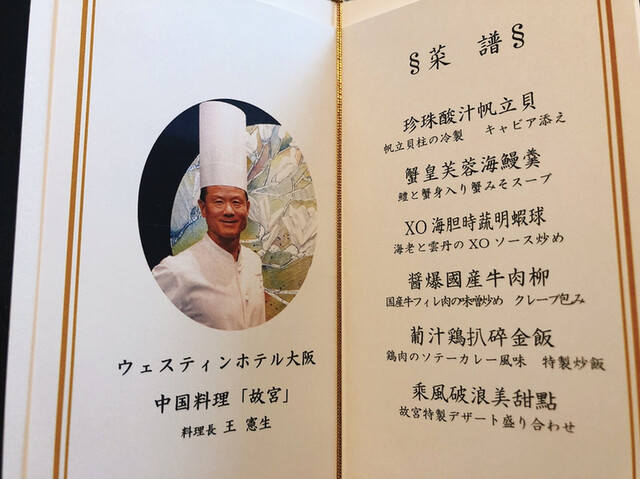 ウェスティンホテル大阪
中国料理「故宮」
料理長 王 憲生
§ 菜 譜 §
珍珠酸汁帆立貝
帆立貝柱の冷製 キャビア添え
蟹皇芙蓉海鰻羹
鱧と蟹身入り蟹みそスープ
XO海胆時蔬明蝦球
海老と雲丹のXOソース炒め
醤爆國産牛肉柳
国産牛フィレ肉の味噌炒め クレープ包み
葡汁鶏扒碎金飯
鶏肉のソテーカレー風味 特製炒飯
乘風破浪美甜點
故宮特製デザート盛り合わせ